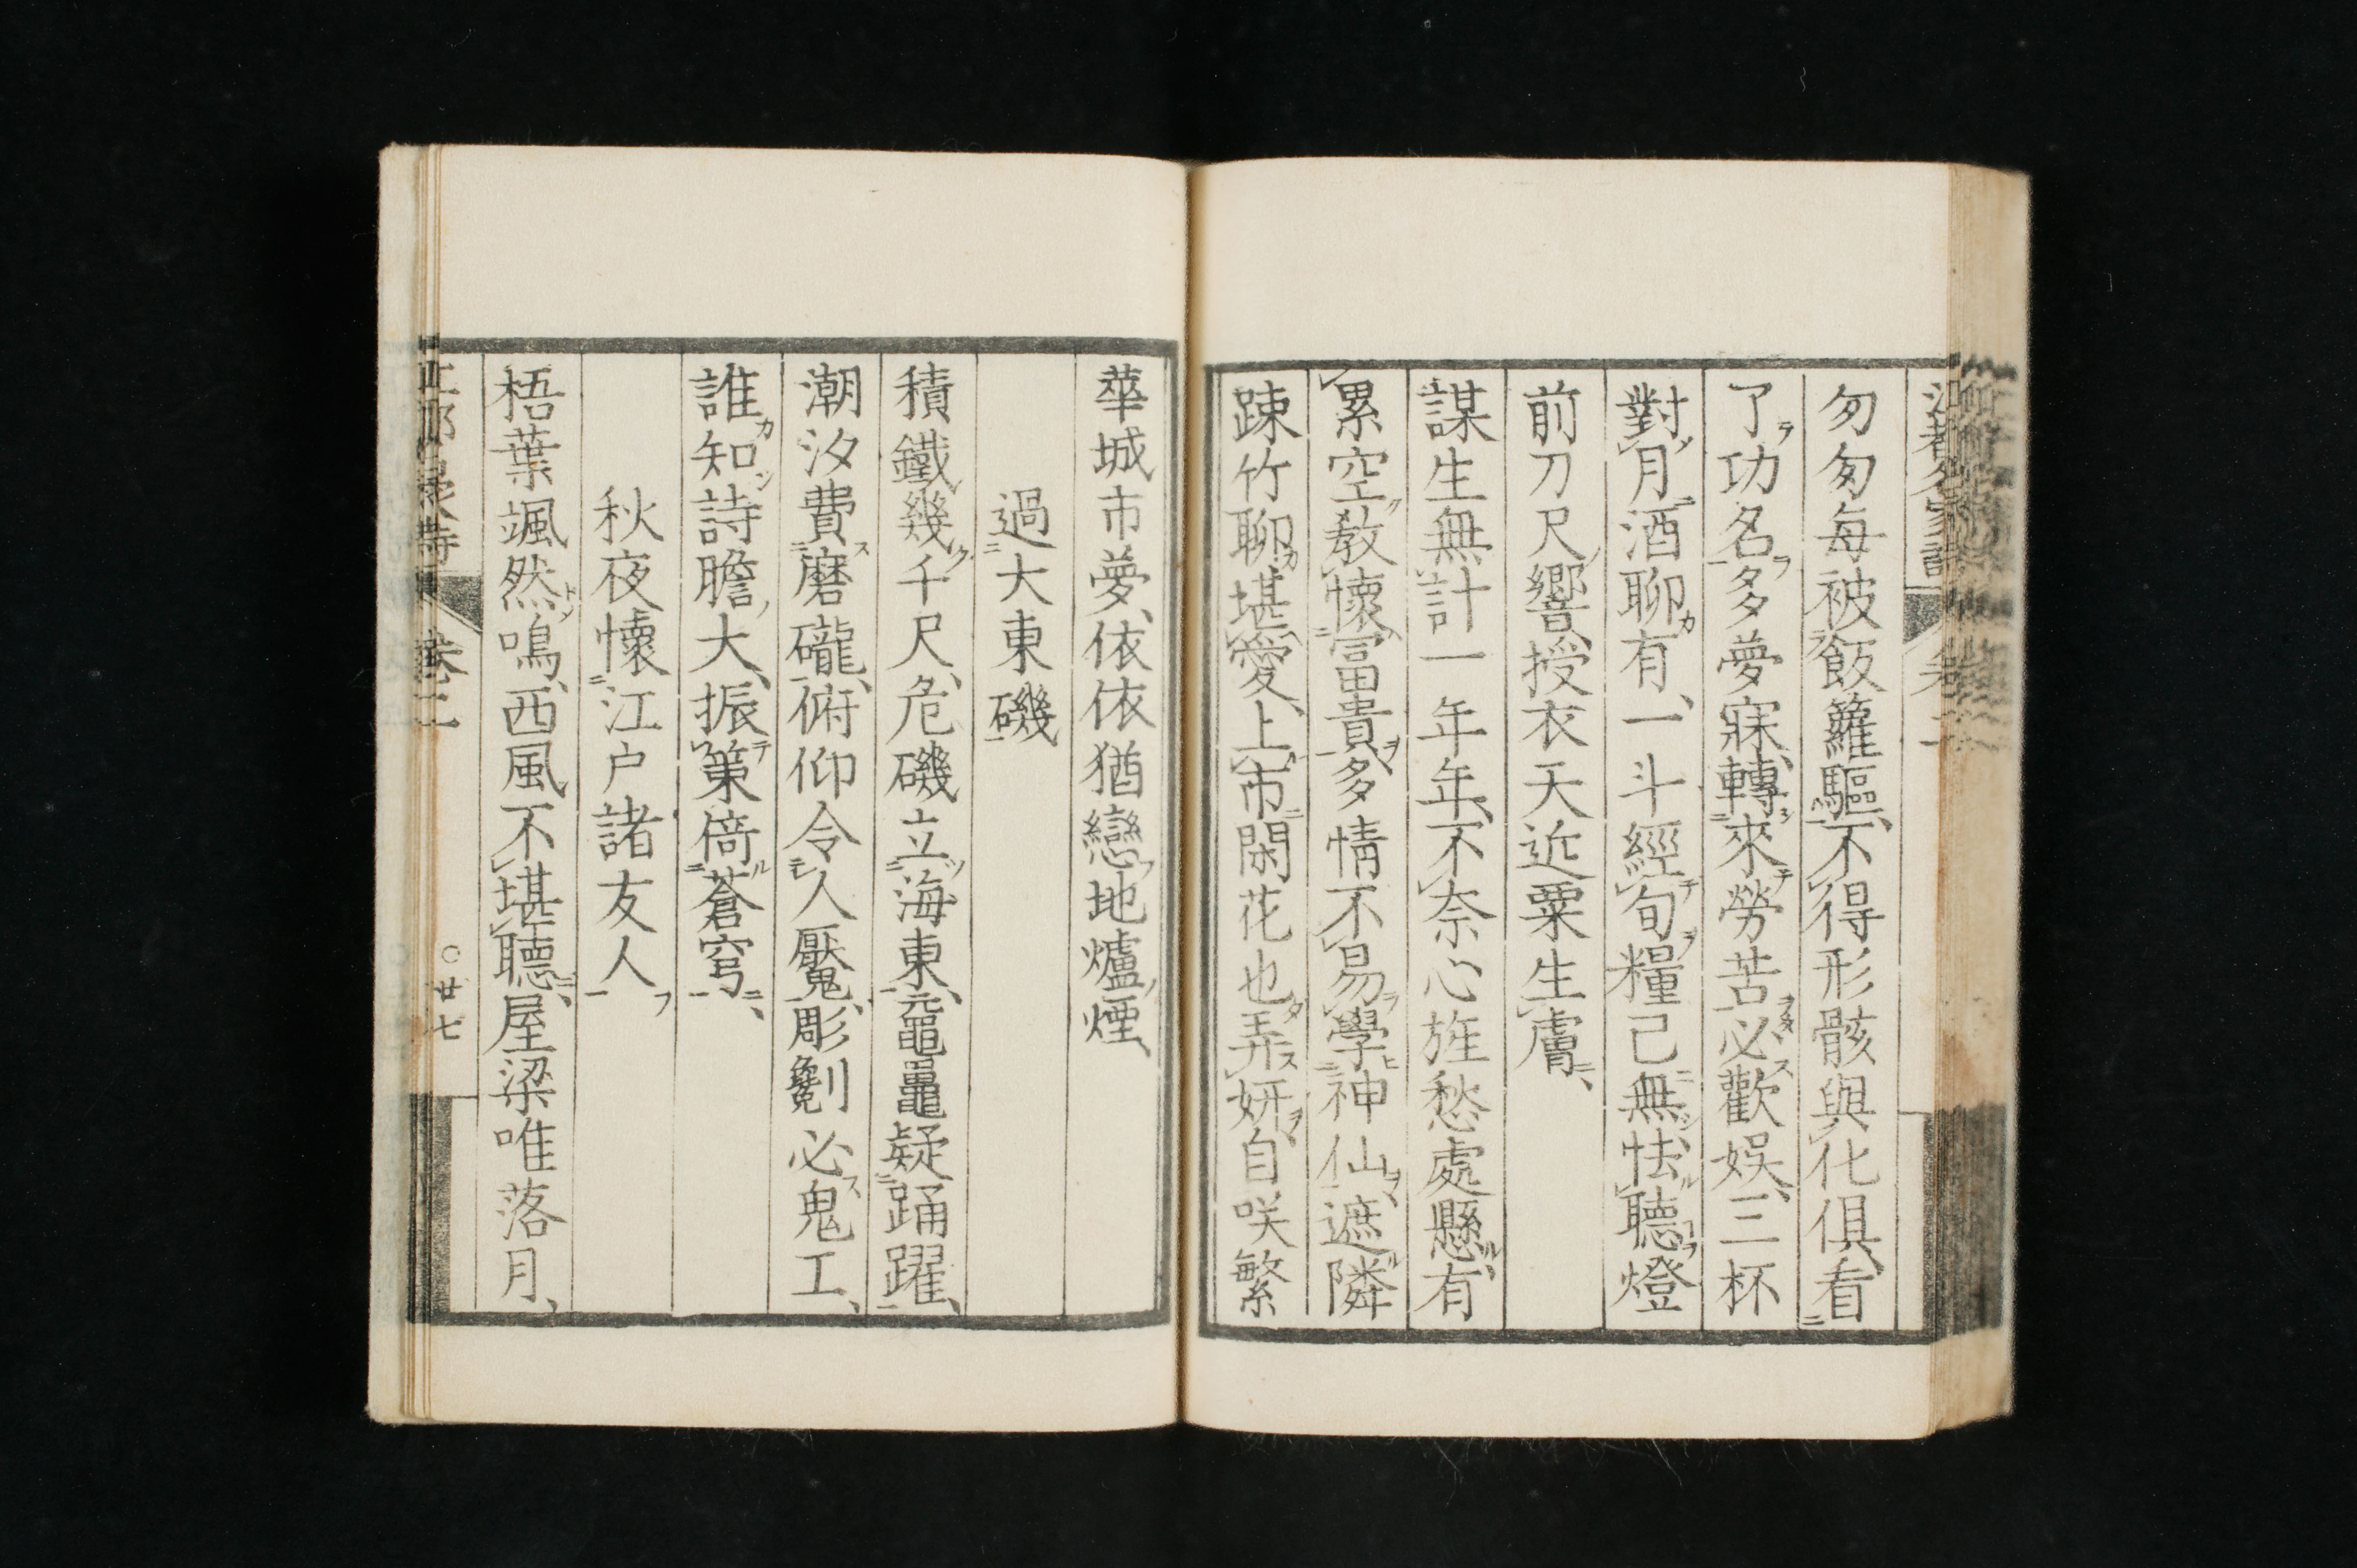 匆匆每被飯籮驅、不得形骸與化俱、看
了功名多夢寐、轉來勞苦必歡娯、三杯
對月酒聊有、一斗經旬糧已無、怯聽燈
前刀尺響、授衣天近粟生膚、
謀生無計一年年、不奈心旌愁處懸、有
累空教懷冨貴、多情不易學神仙、遮隣
踈竹聊堪愛、上市閑花也弄妍、自咲繁
華城市夢、依依猶戀地爐煙、
過大東磯
積鐵幾千尺、危磯立海東、黿鼉疑踊躍、
潮汐費磨礲、俯仰令人魘、彫劖必鬼工、
誰知詩膽大、振策倚蒼穹、
秋夜懷江戸諸友人
梧葉颯然鳴、西風不堪聽、屋梁唯落月、
卷二
○廿七